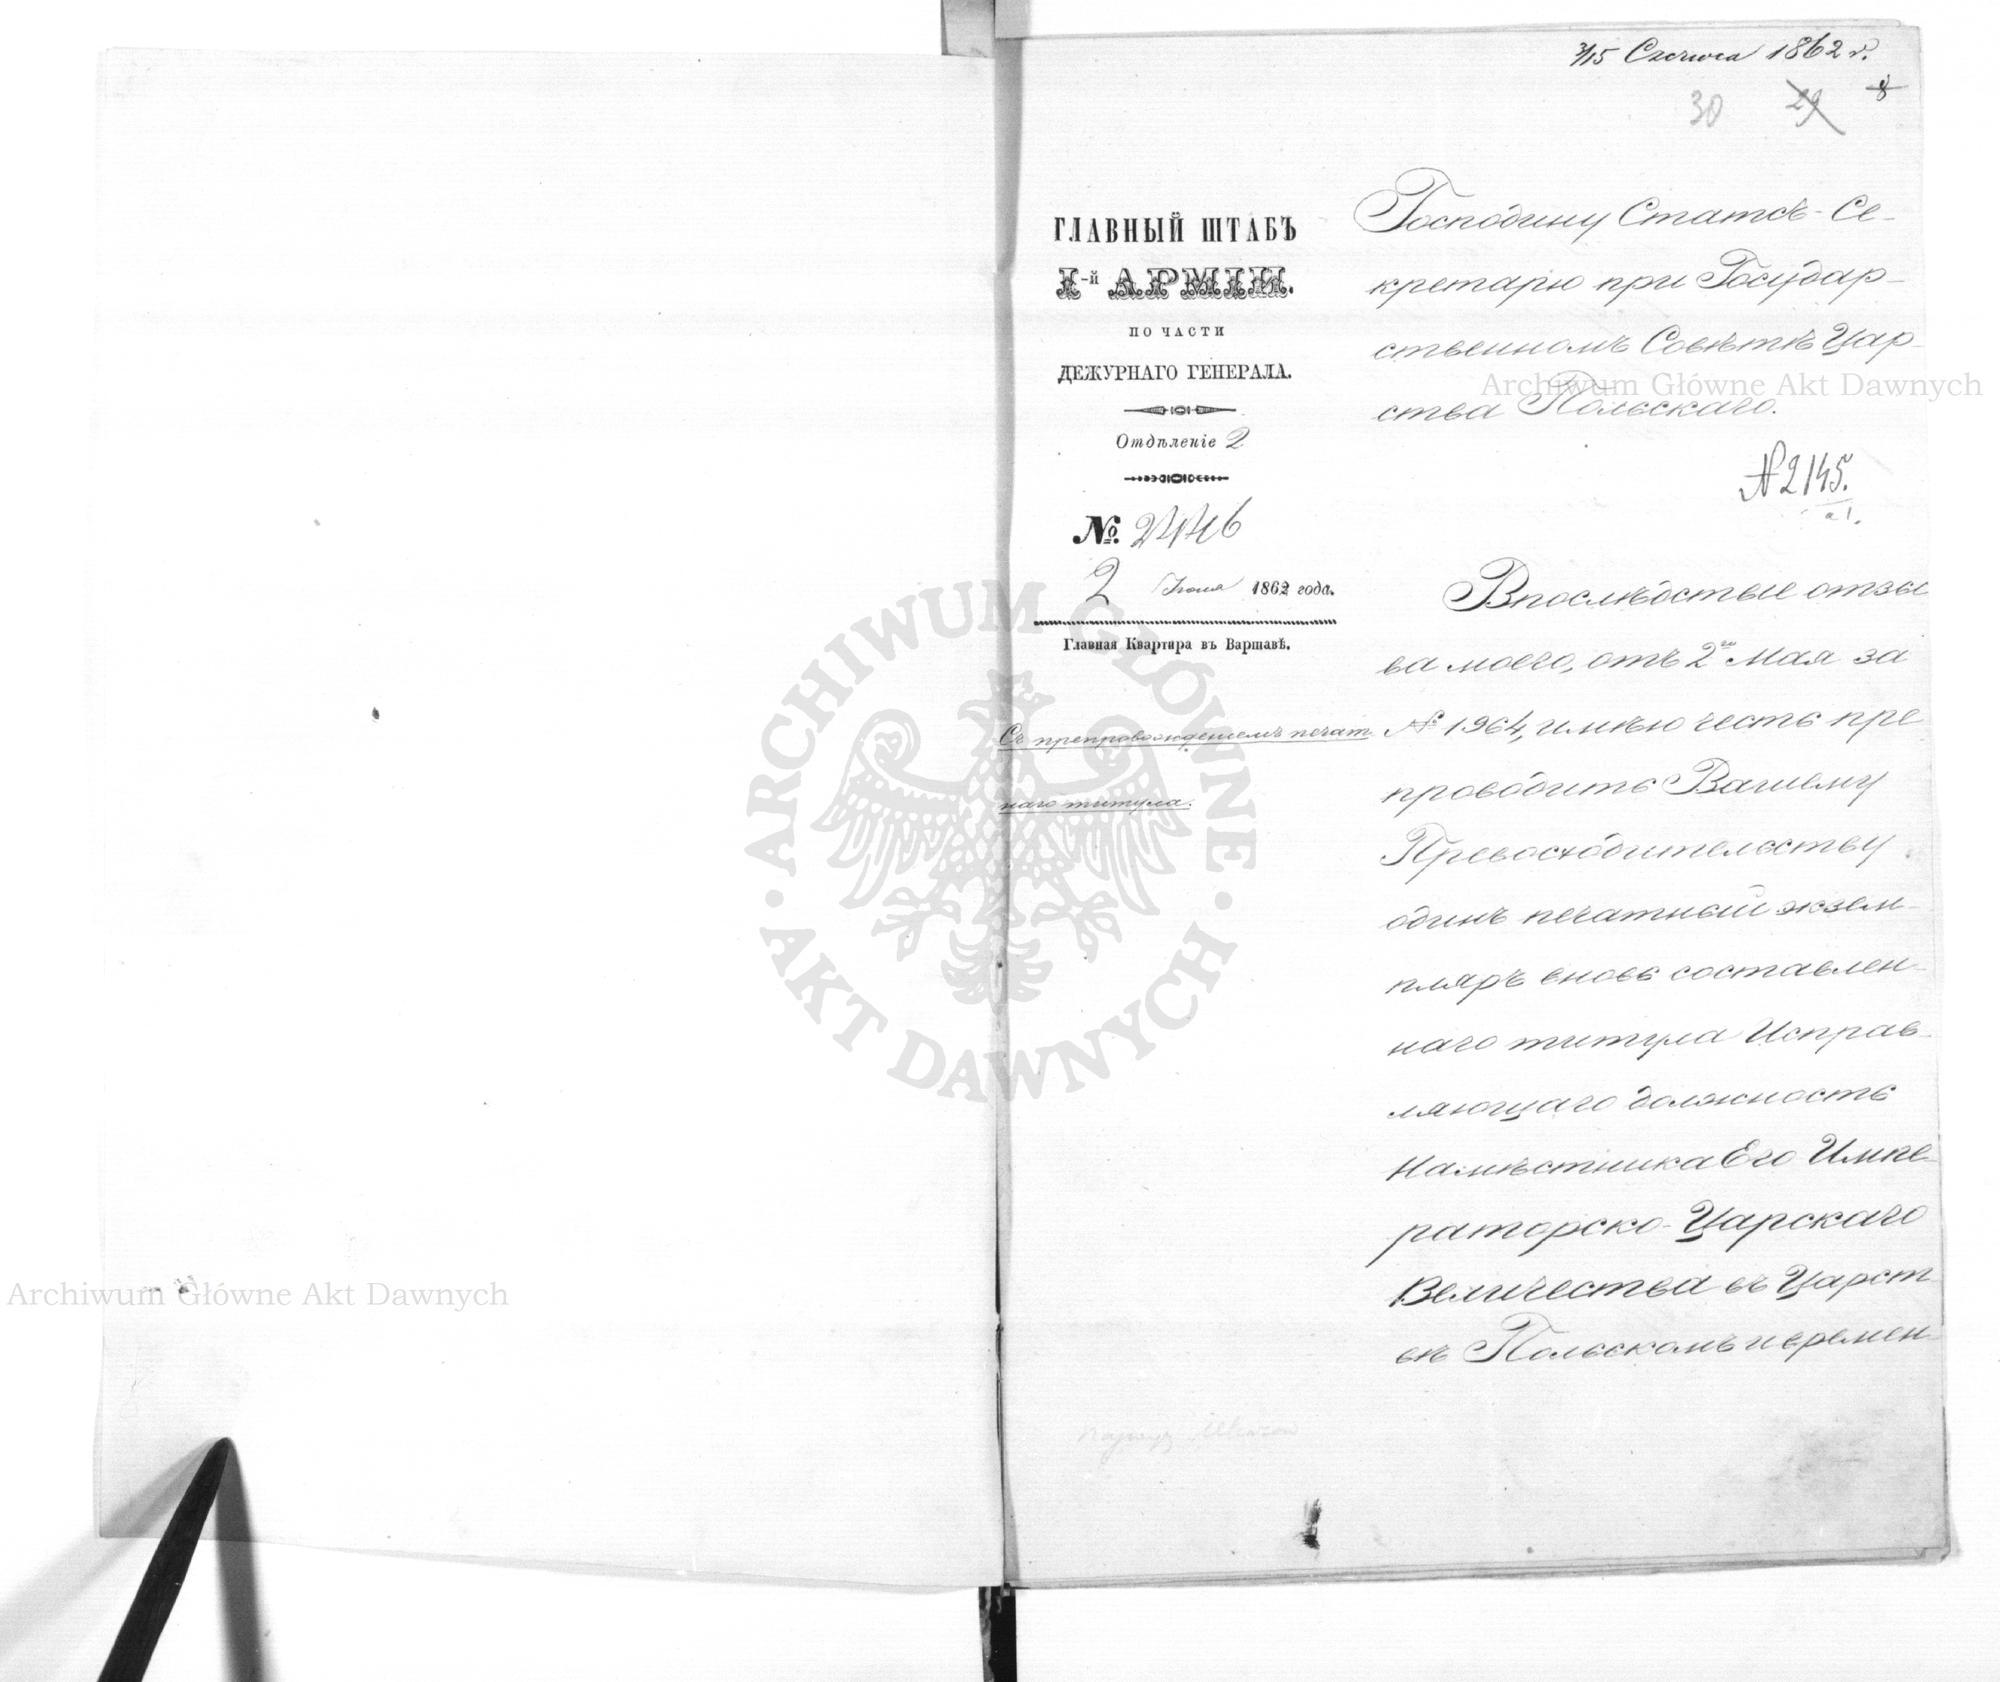 3/15 Czerwca 1862 r.
30 29 8
ГЛАВНЫЙ ШТАБЪ
I-й АРМІИ.
ПО ЧАСТИ
ДЕЖУРНАГО ГЕНЕРАЛА.
Отдѣленіе 2
№ 2446
2 Іюня 1862 года.
Главная Квартира въ Варшавѣ.
Съ препровожденіемъ печат
наго титула.
Господину Статсъ-Се-
кретарю при Государ-
ственномъ Совѣтѣ Цар-
ства Польскаго.
№ 2145.
Впослѣдствіе отзы
ва моего, отъ 2го Мая за
№ 1964, имѣю честь пре
проводить Вашему
Превосходительству
одинъ печатный экзем-
пляръ вновь составлен-
наго титула Исправ-
ляющаго должность
Намѣстника Его Импе-
раторско-Царскаго
Величества въ Царст-
вѣ Польскомъ и времен-
Archiwum Główne Akt Dawnych
Archiwum Główne Akt Dawnych
ARCHIWUM GŁÓWNE
AKT DAWNYCH